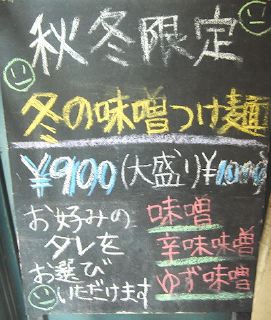 秋冬限定
冬の味噌つけ麺
¥900(大盛り¥1000
お好みの
タレを
お選び
いただけます
味噌
辛味味噌
ゆず味噌